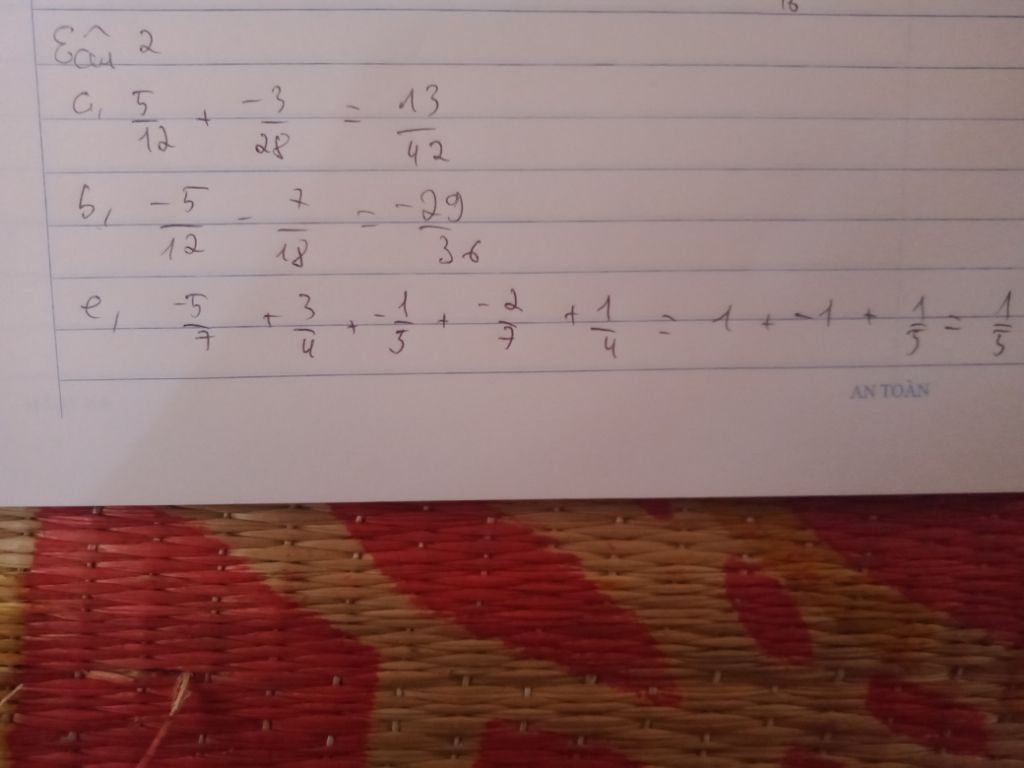 16
Câu 2
a, 5/12 + -3/28 = 13/42
b, -5/12 - 7/18 = -29/36
e, -5/7 + 3/4 + -1/5 + -2/7 + 1/4 = 1 + -1 + 1/5 = 1/5
AN TOÀN